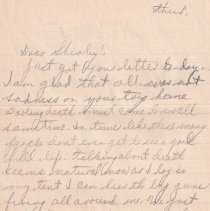 Thur.
Dear Shirley:
Just got your letter to-day.
I am glad that all was not
sadness on your trip home.
death must come to us all
sometime. In time like this many
people don't even get to see a good
life. talking about death
seems natural now as I lay in
my tent I can hear the big guns
firing all around me. We just